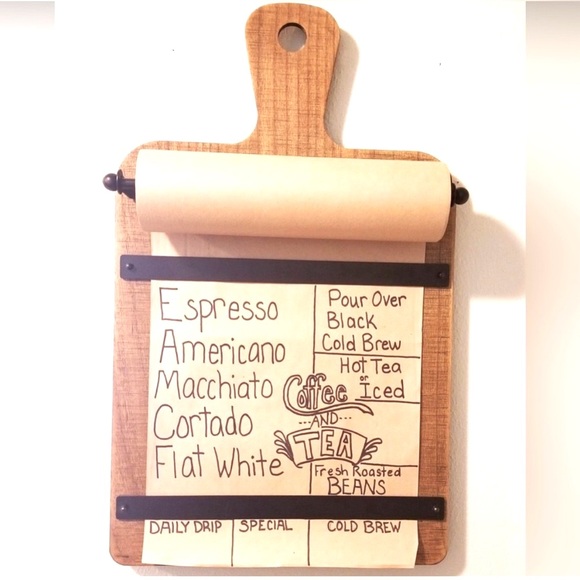 Espresso
Americano
Macchiato
Cortado
Flat White
Pour Over
Black
Cold Brew
Hot Tea
or
Iced
Coffee
AND
TEA
Fresh Roasted
BEANS
DAILY DRIP
SPECIAL
COLD BREW